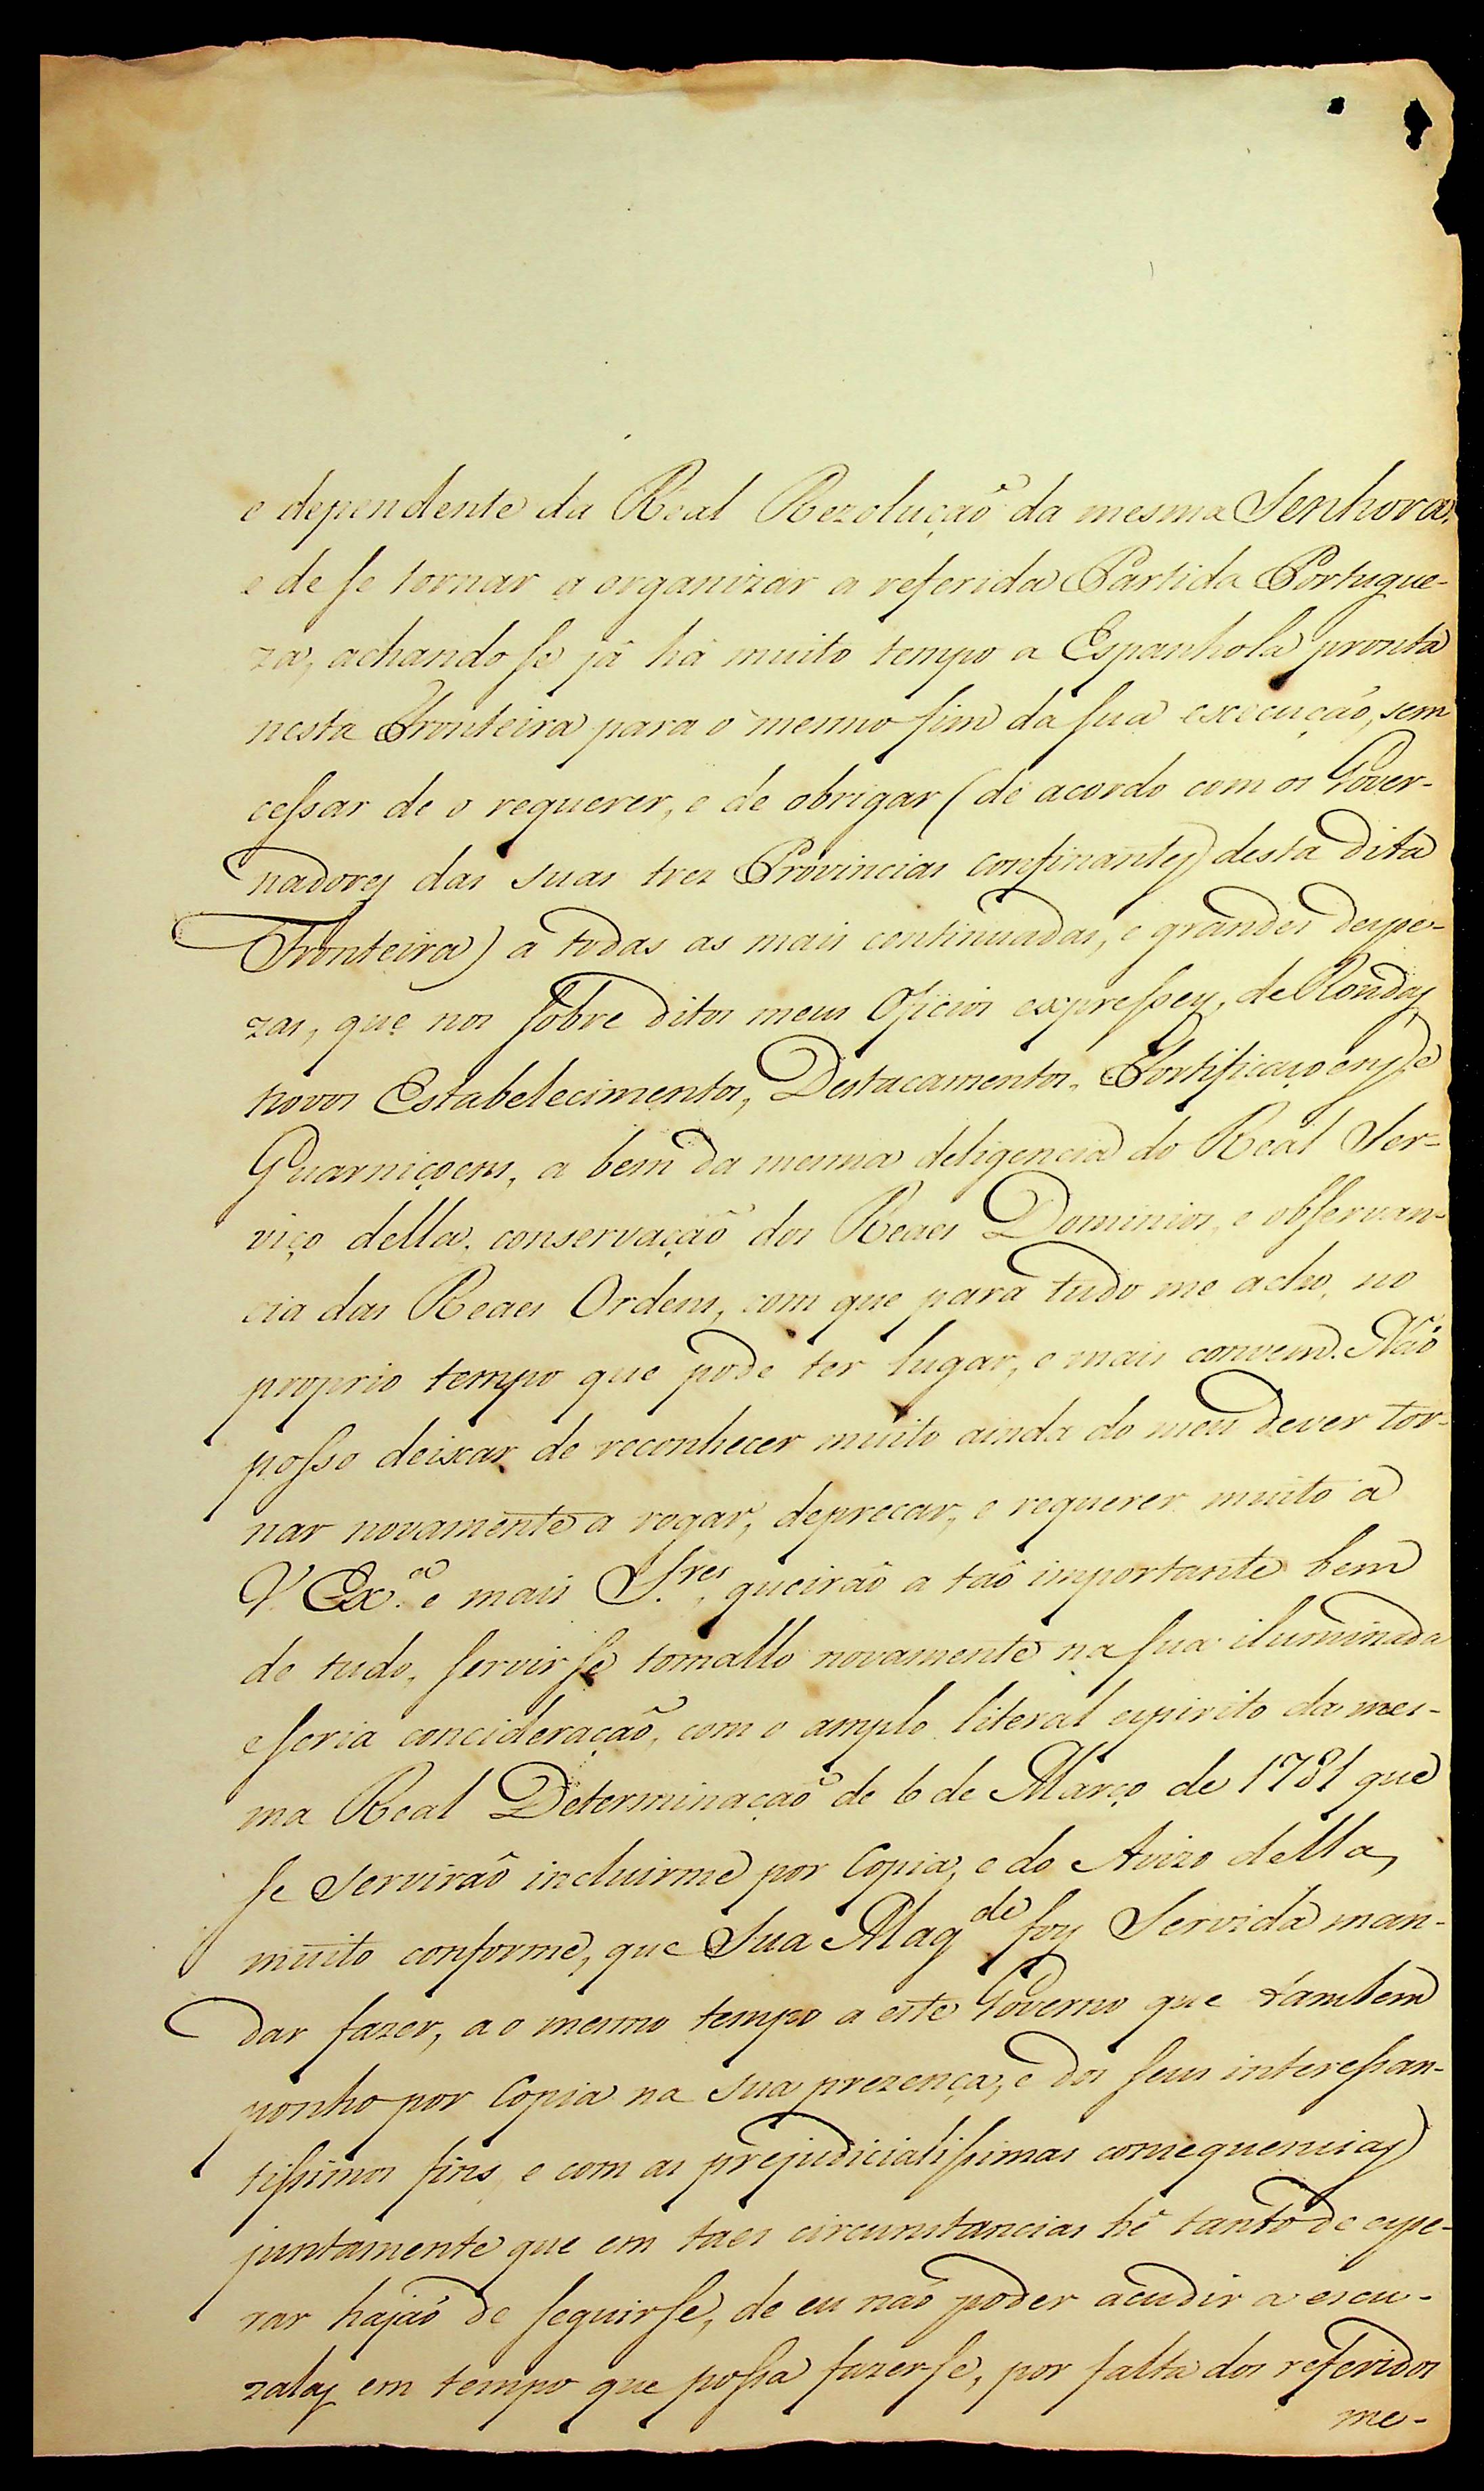 e dependente da Real Rezolução da mesma Senhora,
e de se tornar a organizar a referida Partida Portugue-
za, achando se já há muito tempo a Espanhola pronta
nesta Fronteira para o mesmo fim da sua execução, sem
cessar de o requerer, e de obrigar (de acordo com os Gover-
nadores das suas tres Provincias confinantes desta dita
Fronteira) a todas as mais continuadas, e grandes despe-
zas, que nos sobre ditos meus Oficios expressey, de Rondas,
novos Estabelecimentos, Destacamentos, Fortificaçoens, e
Guarniçoens, a bem da mesma deligencia do Real Ser-
viço della, conservação dos Reaes Dominios, e observan-
cia das Reaes Ordens, com que para tudo me acho, no
proprio tempo que pode ter lugar, e mais convem. Não
posso deixar de reconhecer muito ainda do meu dever tor-
nar novamente a rogar, deprecar, e requerer muito a
V. Ex.ª e mais S.res, queirão a tão importante bem
de tudo, servir se tomallo novamente na sua iluminada
e seria concideração, com o amplo literal espirito da mes-
ma Real Determinação de 6 de Março de 1781 que
se servirão incluirme por Copia, e do Avizo della,
muito conforme, que Sua Mag.de foy Servida man-
dar fazer, ao mesmo tempo a este Governo que tambem
ponho por Copia na sua prezença, e dos seus interessan-
tissimos fins, e com as prejudicialissimas consequencias
juntamente que em taes circunstancias hé tanto de espe-
rar hajão de seguirse, de eu não poder acudir a escu-
zalas em tempo que possa fazerse, por falta dos referidos
me-